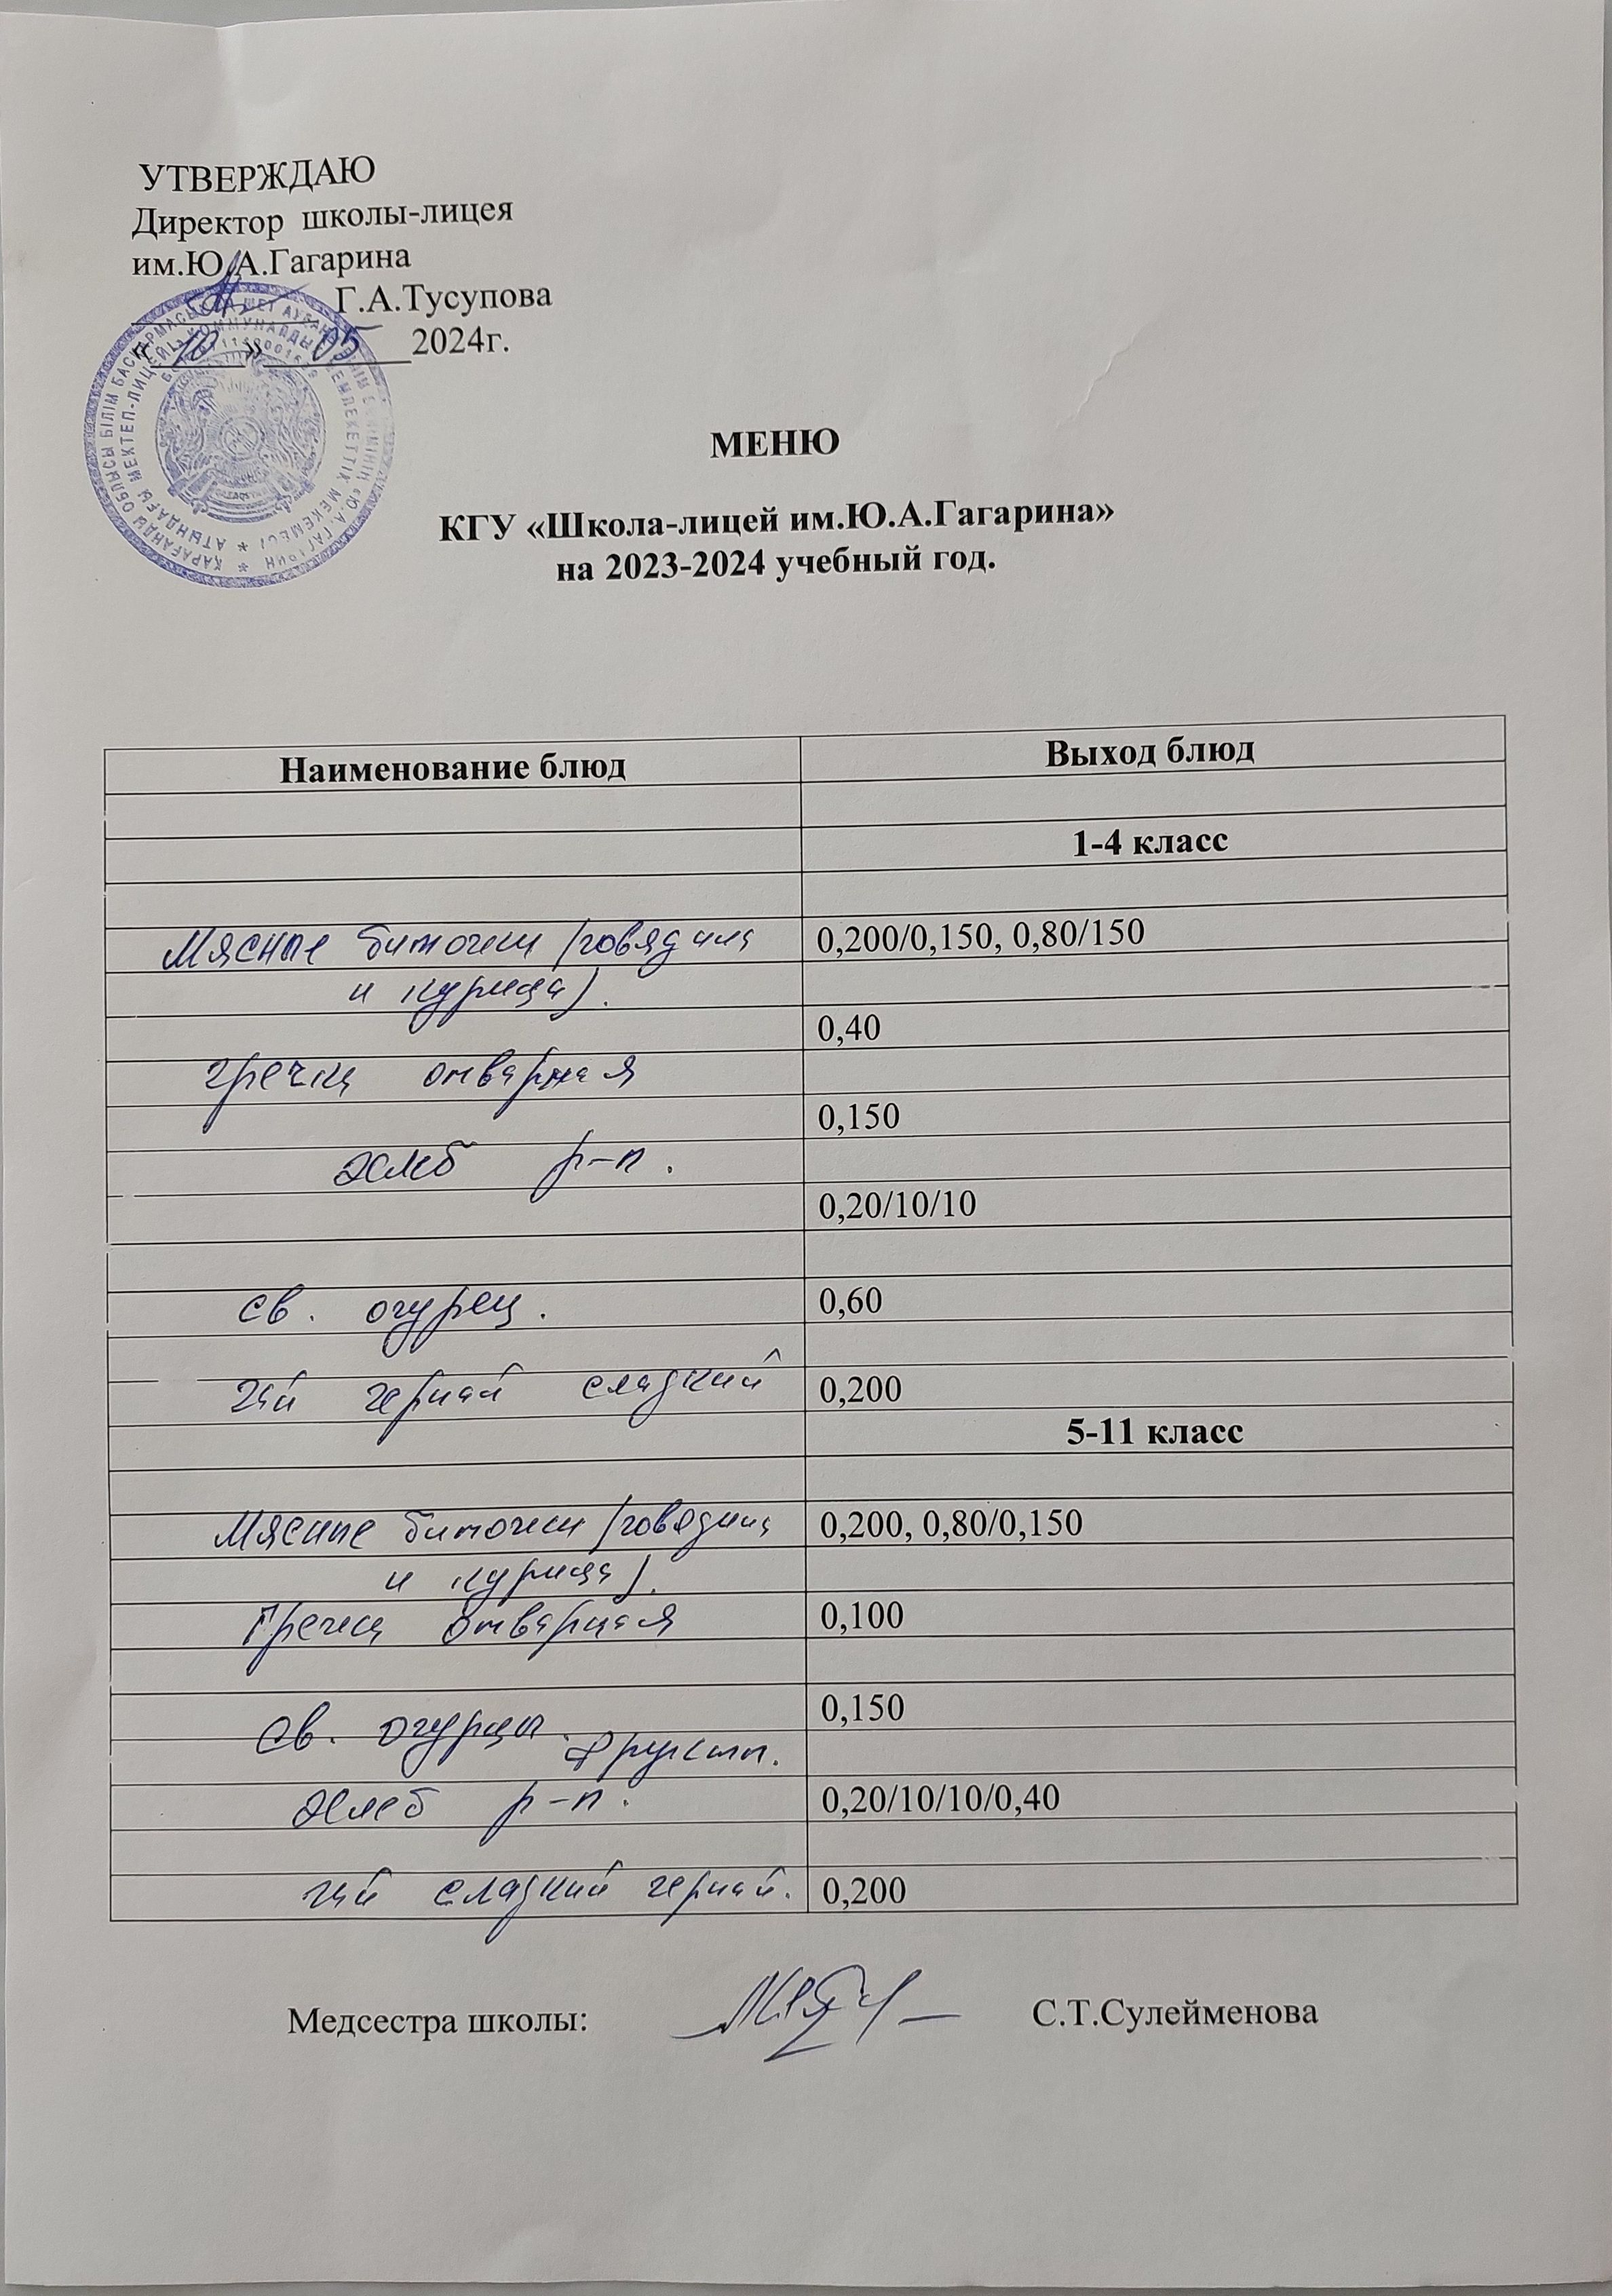 УТВЕРЖДАЮ
Директор школы-лицея
им.Ю.А.Гагарина
Г.А.Тусупова
«10» 05 2024г.
МЕНЮ
КГУ «Школа-лицей им.Ю.А.Гагарина»
на 2023-2024 учебный год.
Наименование блюд Выход блюд
1-4 класс
Мясные биточки (говядина 0,200/0,150, 0,80/150
и курица).
0,40
гречка отварная
0,150
Хлеб р-п.
0,20/10/10
св. огурец. 0,60
Чай черный сладкий 0,200
5-11 класс
Мясные биточки (говядина 0,200, 0,80/0,150
и курица).
Гречка отварная 0,100
0,150
св. огурцы.
Фрукты.
Хлеб р-п. 0,20/10/10/0,40
чай сладкий черный. 0,200
Медсестра школы: С.Т.Сулейменова